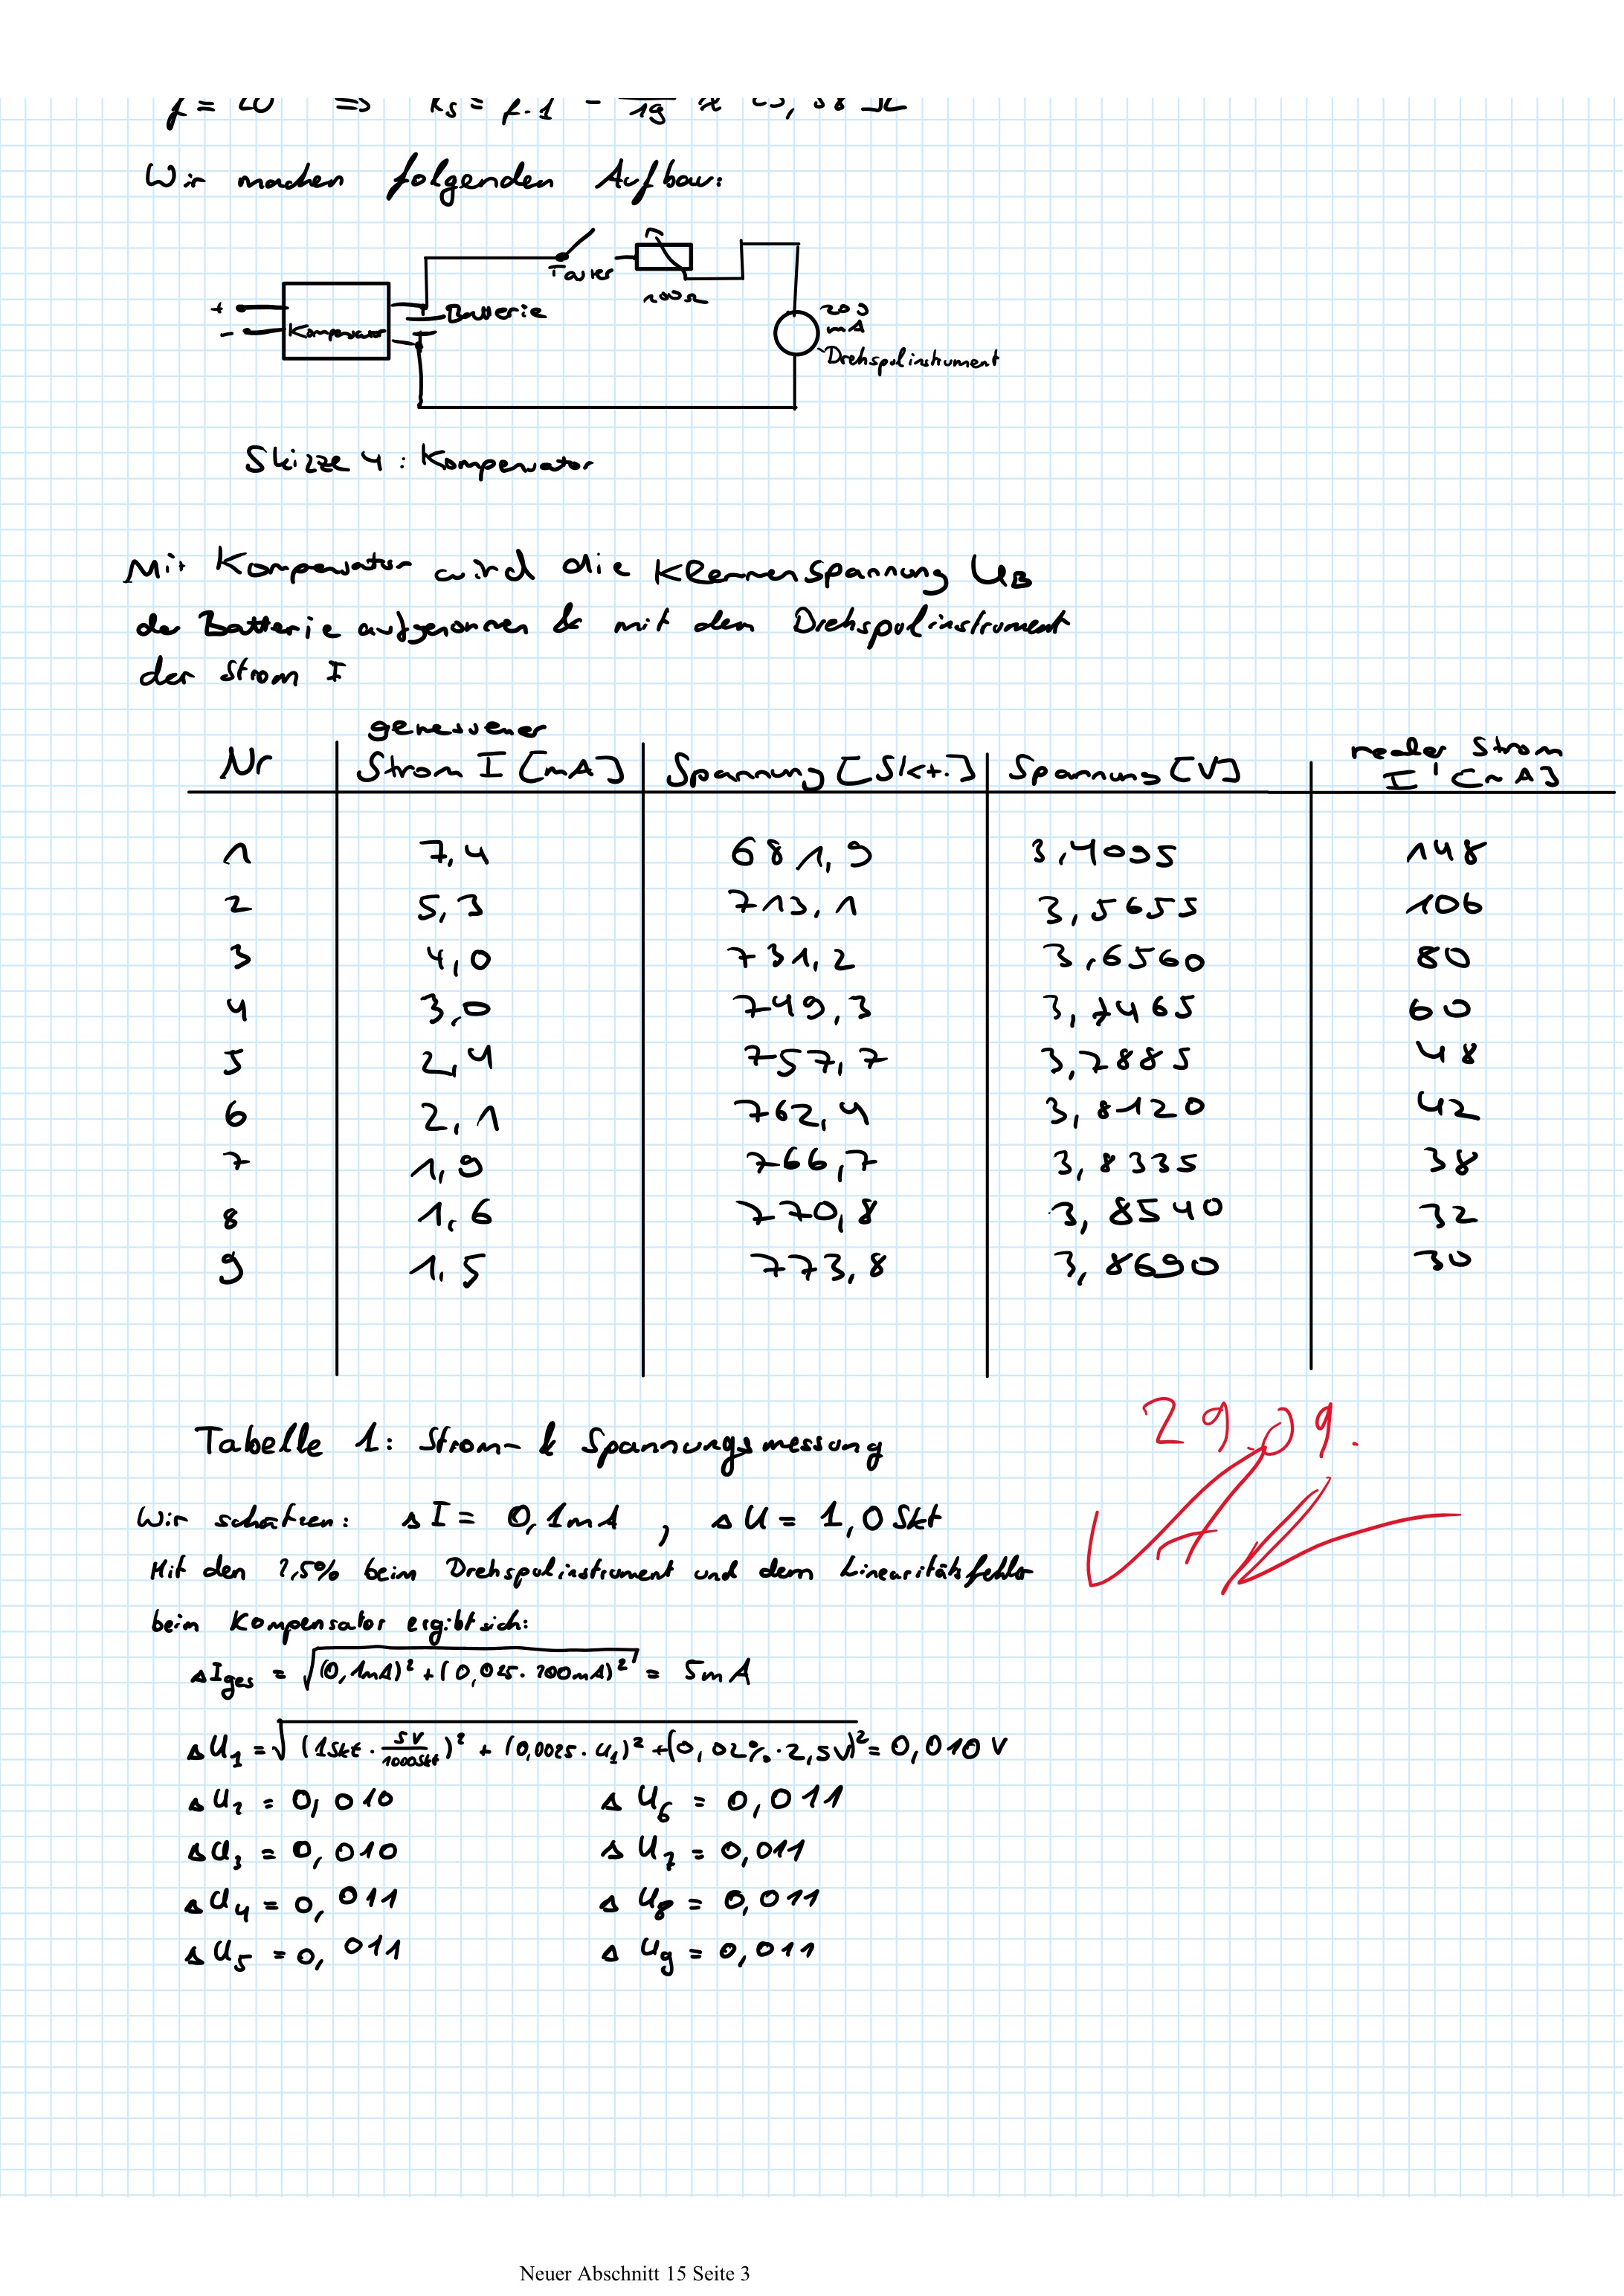 Wir machen folgenden Aufbau:
Taster
100Ω
+
-
Kompensator
Batterie
200
mA
Drehspulinstrument
Skizze 4 : Kompensator
Mit Kompensator wird die Klemmenspannung U_B
der Batterie aufgenommen & mit dem Drehspulinstrument
der Strom I
Nr | gemessener Strom I [mA] | Spannung [Skt.] | Spannung [V] | realer Strom I' [mA]
1 7,4 681,9 3,4095 148
2 5,3 713,1 3,5655 106
3 4,0 731,2 3,6560 80
4 3,0 749,3 3,7465 60
5 2,4 757,7 3,7885 48
6 2,1 762,4 3,8120 42
7 1,9 766,7 3,8335 38
8 1,6 770,8 3,8540 32
9 1,5 773,8 3,8690 30
29.09.
Tabelle 1: Strom- & Spannungsmessung
Wir schätzen: ΔI = 0,1mA , ΔU = 1,0 Skt
Mit den 2,5% beim Drehspulinstrument und dem Linearitätsfehler
beim Kompensator ergibt sich:
ΔI_ges = √((0,1mA)² + (0,025 · 200mA)²) = 5mA
ΔU₁ = √((1Skt · 5V/1000Skt)² + (0,0025 · U₁)² + (0,02% · 2,5V)²) = 0,010 V
ΔU₂ = 0,010 ΔU₆ = 0,011
ΔU₃ = 0,010 ΔU₇ = 0,011
ΔU₄ = 0,011 ΔU₈ = 0,011
ΔU₅ = 0,011 ΔU₉ = 0,011
Neuer Abschnitt 15 Seite 3